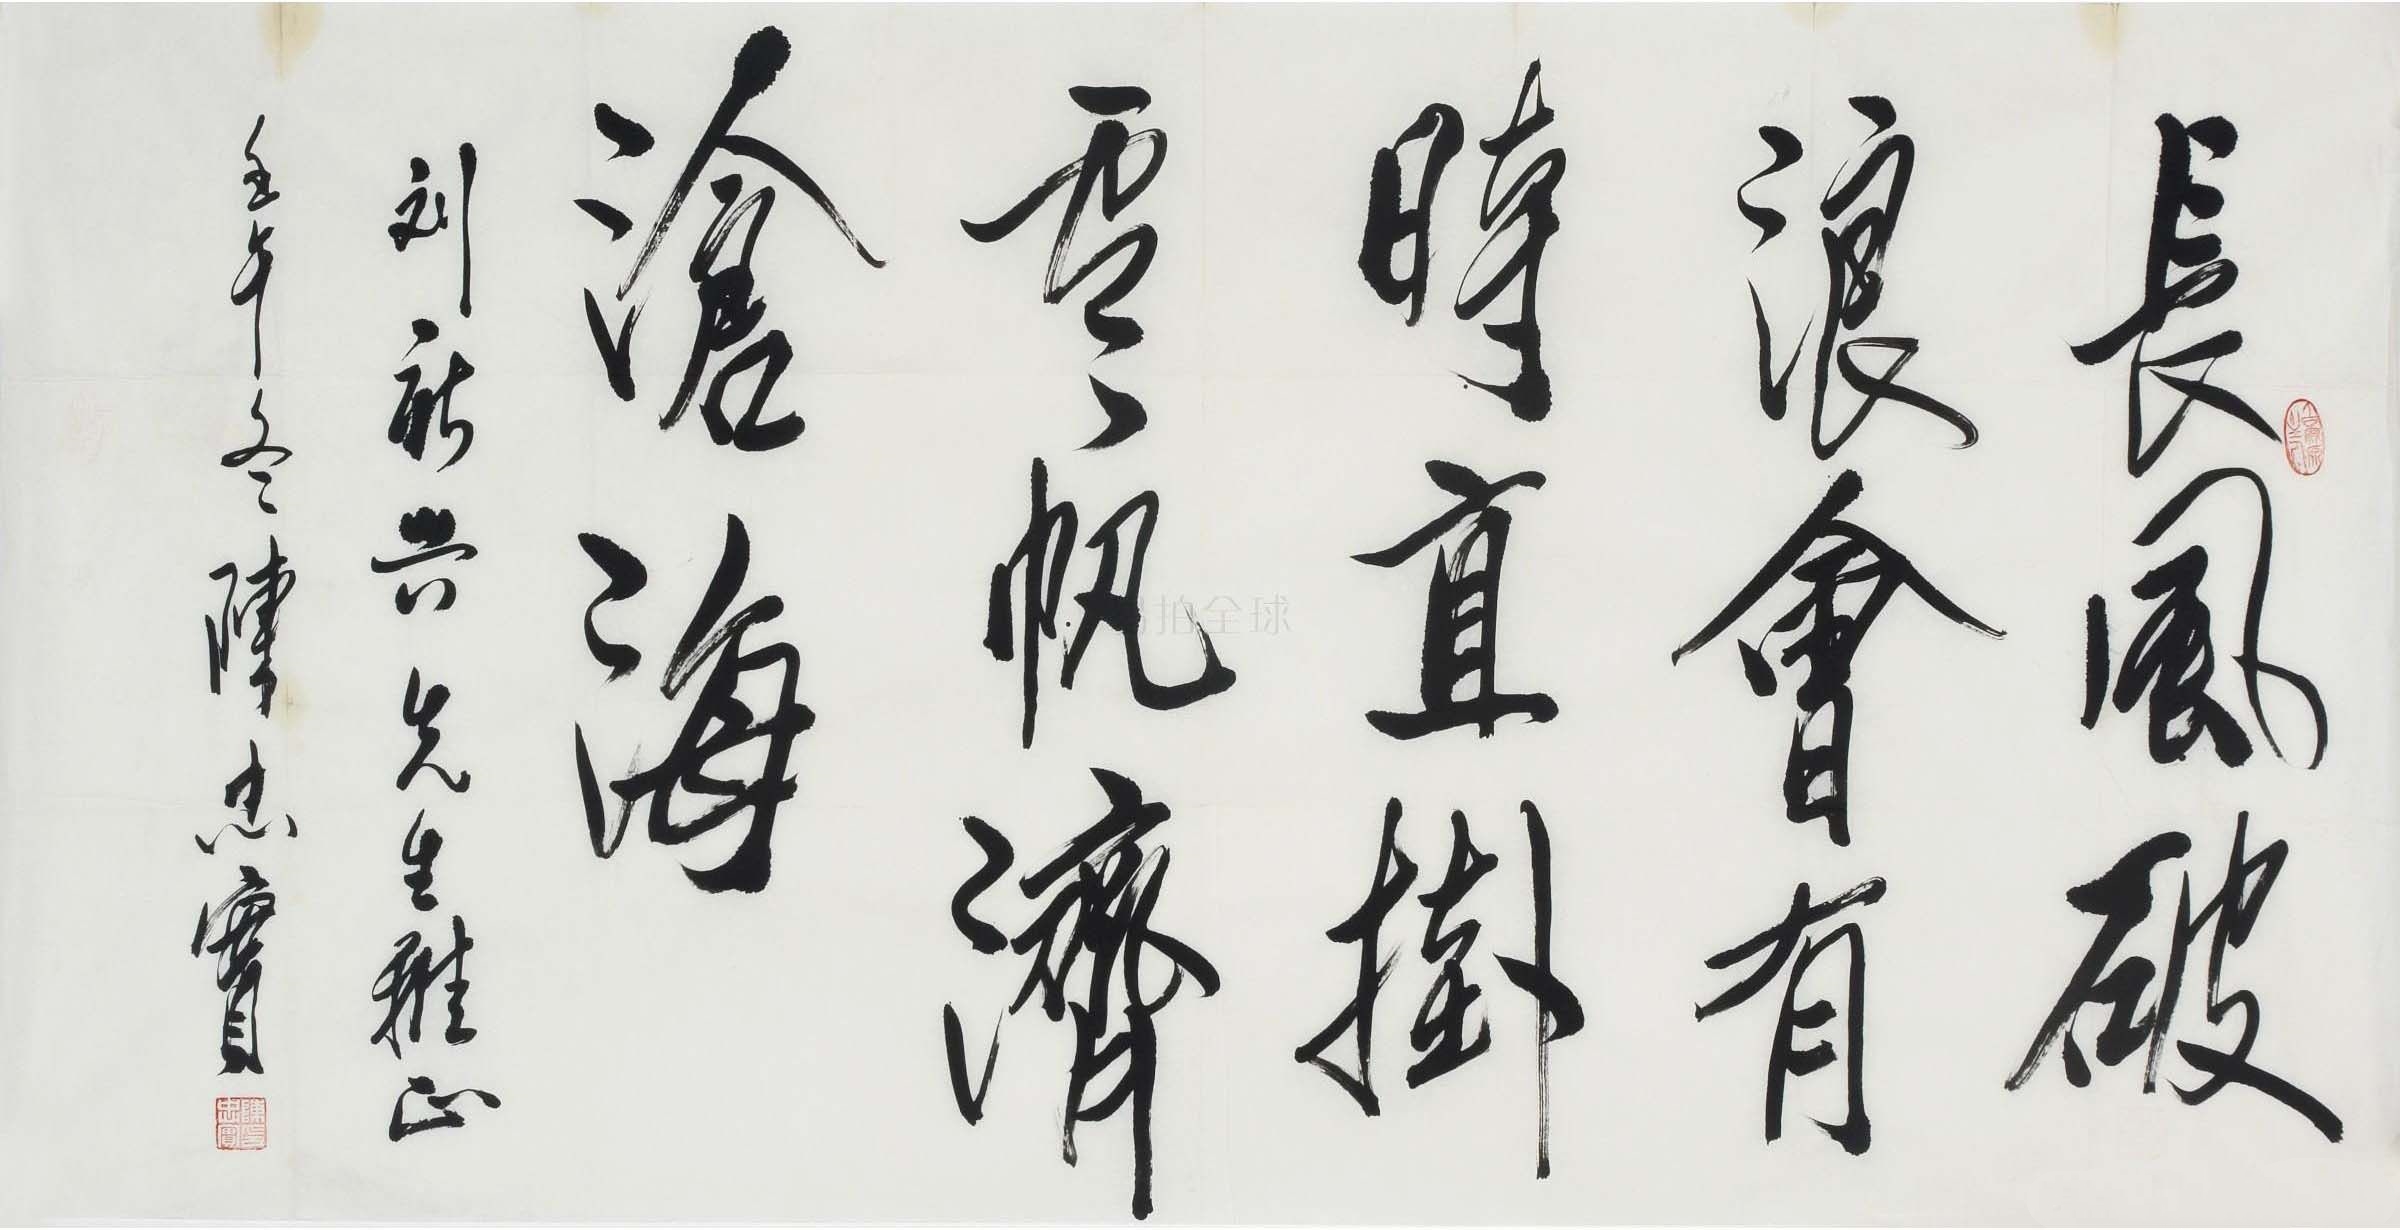 長風破
浪會有
時直掛
雲帆濟
滄海
刘新兴先生雅正
壬午冬 陳忠實
陳忠實印
拍全球